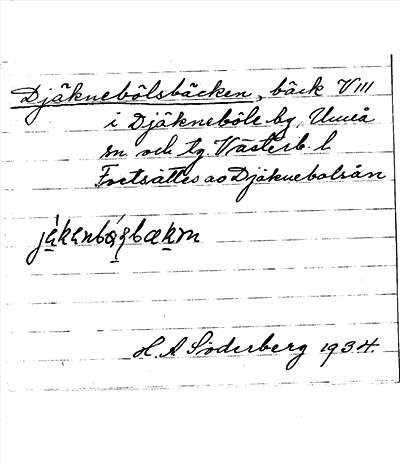 Djäknebölsbäcken, bäck VIII
i Djäkneböle by, Umeå
sn och tg Västerb. l
Fortsättes av Djäknebolsån
H. A Söderberg 1934.